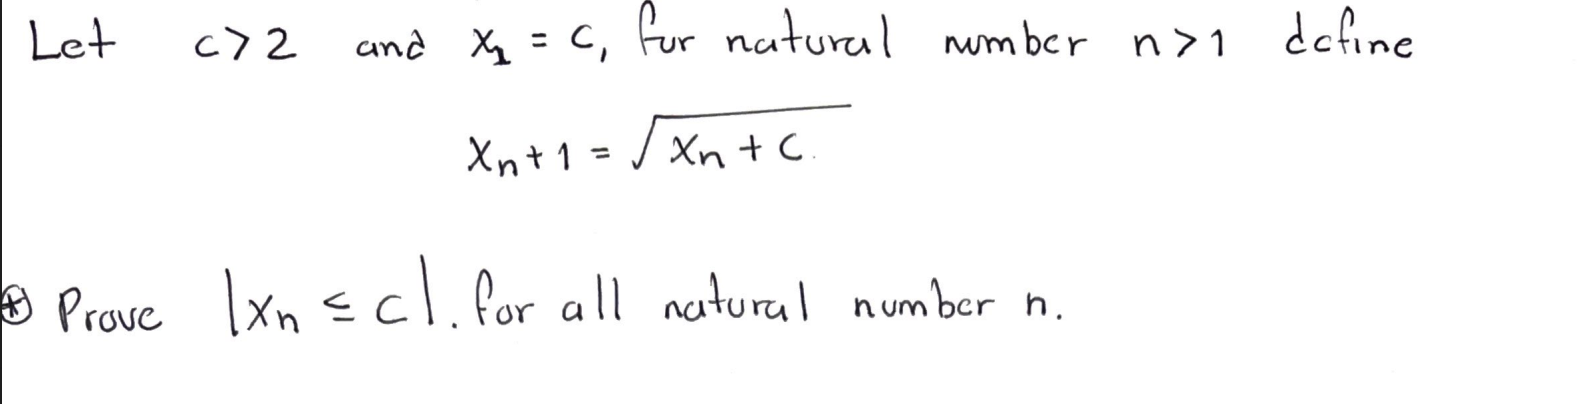 Let c>2 and x₁ = c, for natural number n>1 define
xₙ+1 = √xₙ + c.
⊛ Prove |xₙ ≤ c|. for all natural number n.